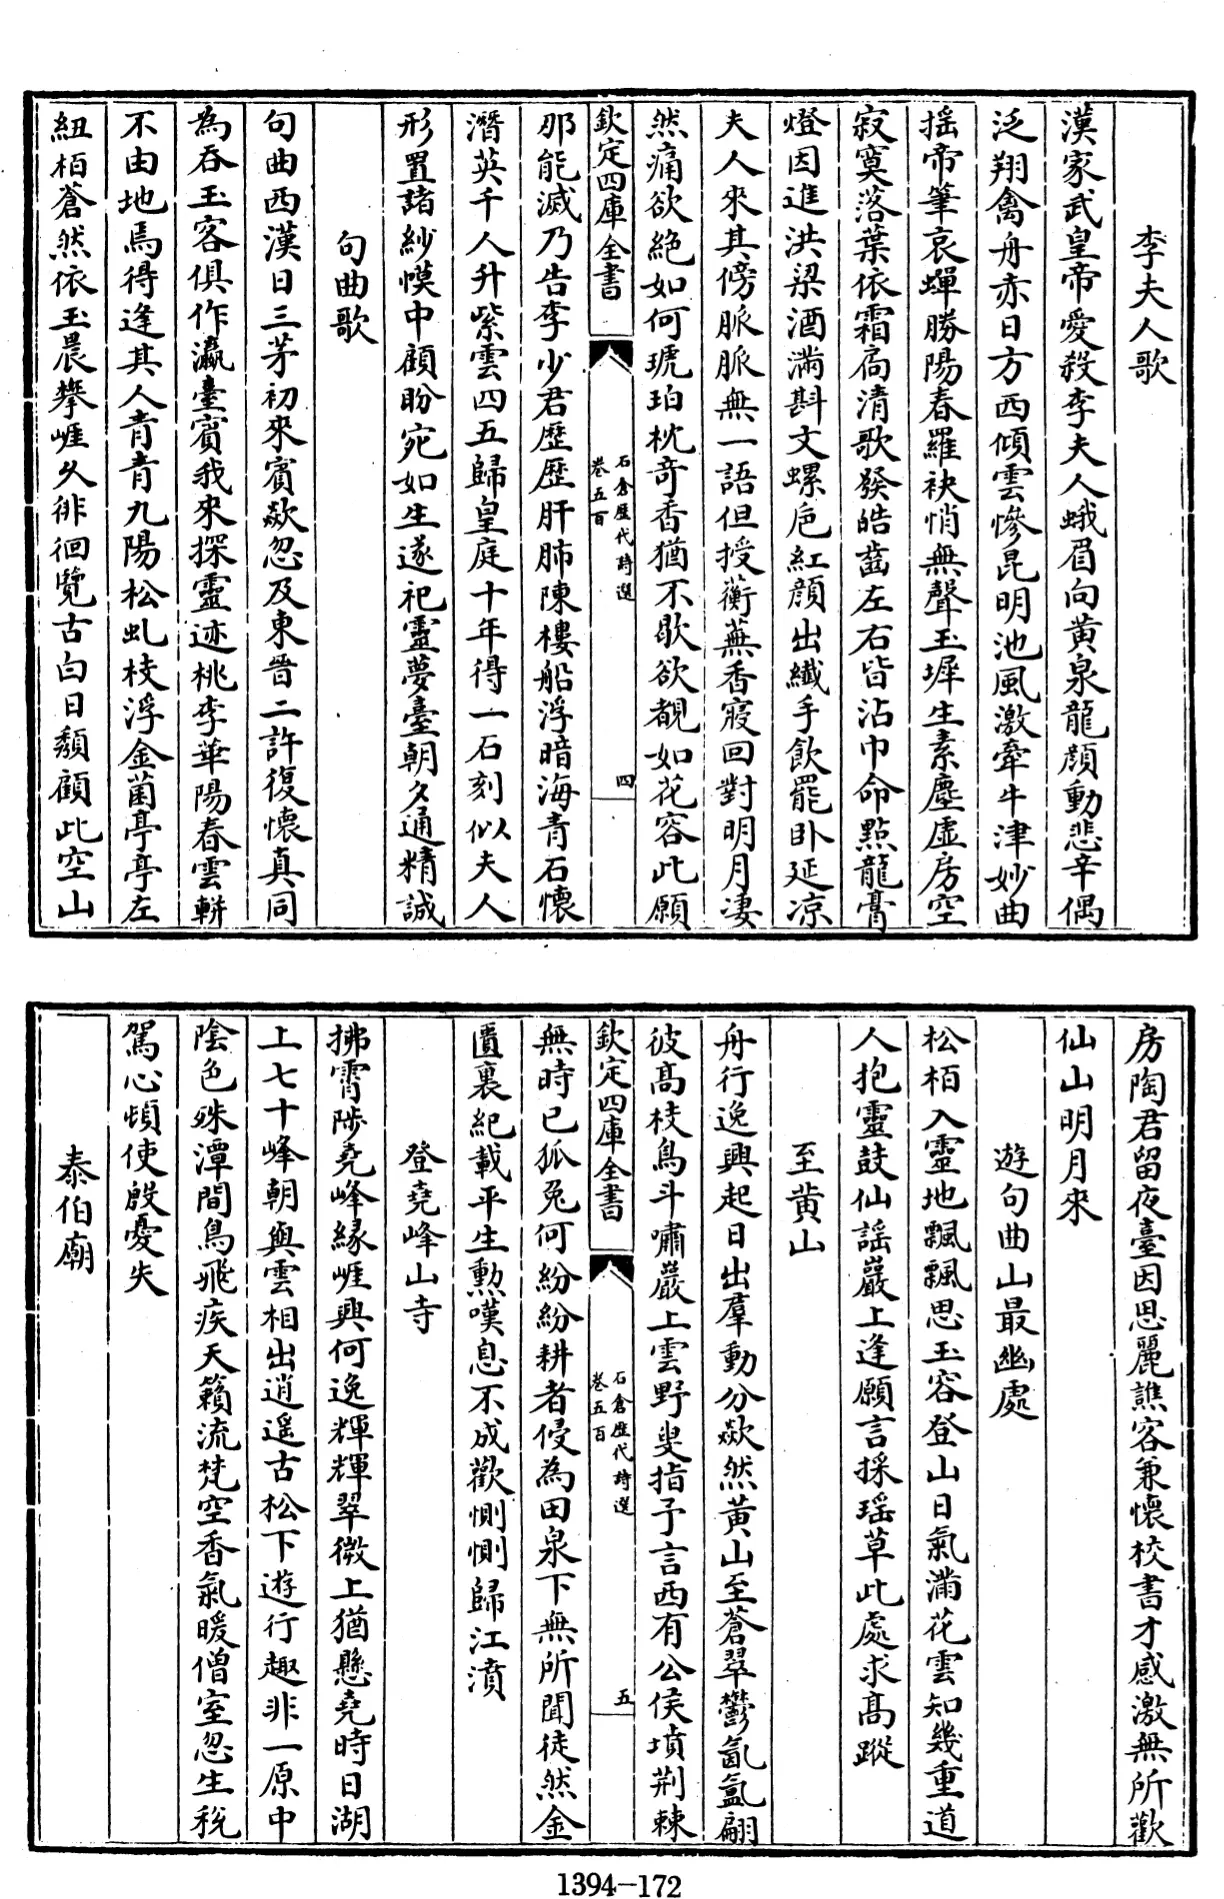 李夫人歌
漢家武皇帝愛殺李夫人蛾眉向黄泉龍顔動悲辛偶
泛翔禽舟赤日方西傾雲慘昆明池風激牽牛津妙曲
揺帝筆哀蟬勝陽春羅袂悄無聲玉墀生素塵虛房空
寂寞落葉依霜扃清歌發皓齒左右皆沾巾命㸃龍膏
燈因進洪梁酒滿斟文螺巵紅顔出纎手飲罷卧延凉
夫人來其傍脈脈無一語但授蘅蕪香寢回對明月淒
然痛欲絶如何琥珀枕竒香猶不歇欲覩如花容此願
欽定四庫全書
石倉歷代詩選
卷五百
四
那能滅乃告李少君歴歴肝肺陳樓船浮暗海青石懐
潛英千人升紫雲四五歸皇庭十年得一石刻似夫人
形置諸紗幙中顧盼宛如生遂祀靈夢臺朝夕通精誠
句曲歌
句曲西漢日三茅初來賓歘忽及東晉二許復懐真同
為吞玉客俱作瀛臺賓我來探靈迹桃李華陽春雲軿
不由地焉得逢其人青青九陽松虬枝浮金菌亭亭左
紐栢蒼然依玉晨攀崕久徘徊覽古白日頽顧此空山
房陶君留夜臺因思麗譙容兼懐校書才感激無所歡
仙山明月來
遊句曲山最幽處
松栢入靈地飄飄思玉容登山日氣滿花雲知幾重道
人抱靈鼓仙謡巖上逢願言採瑶草此處求髙蹤
至黄山
舟行逸興起日出羣動分歘然黄山至蒼翠鬱氤氲翩
彼髙枝鳥斗嘯巖上雲野叟指予言西有公侯墳荆棘
欽定四庫全書
石倉歷代詩選
卷五百
五
無時已狐兔何紛紛耕者侵為田泉下無所聞徒然金
匱裏紀載平生勲嘆息不成歡惻惻歸江濆
登堯峰山寺
拂霄陟堯峰縁崕興何逸輝輝翠微上猶懸堯時日湖
上七十峰朝與雲相出逍遥古松下遊行趣非一原中
陰色殊潭間鳥飛疾天籟流梵空香氣暖僧室忽生税
駕心頓使殷憂失
泰伯廟
1394-172